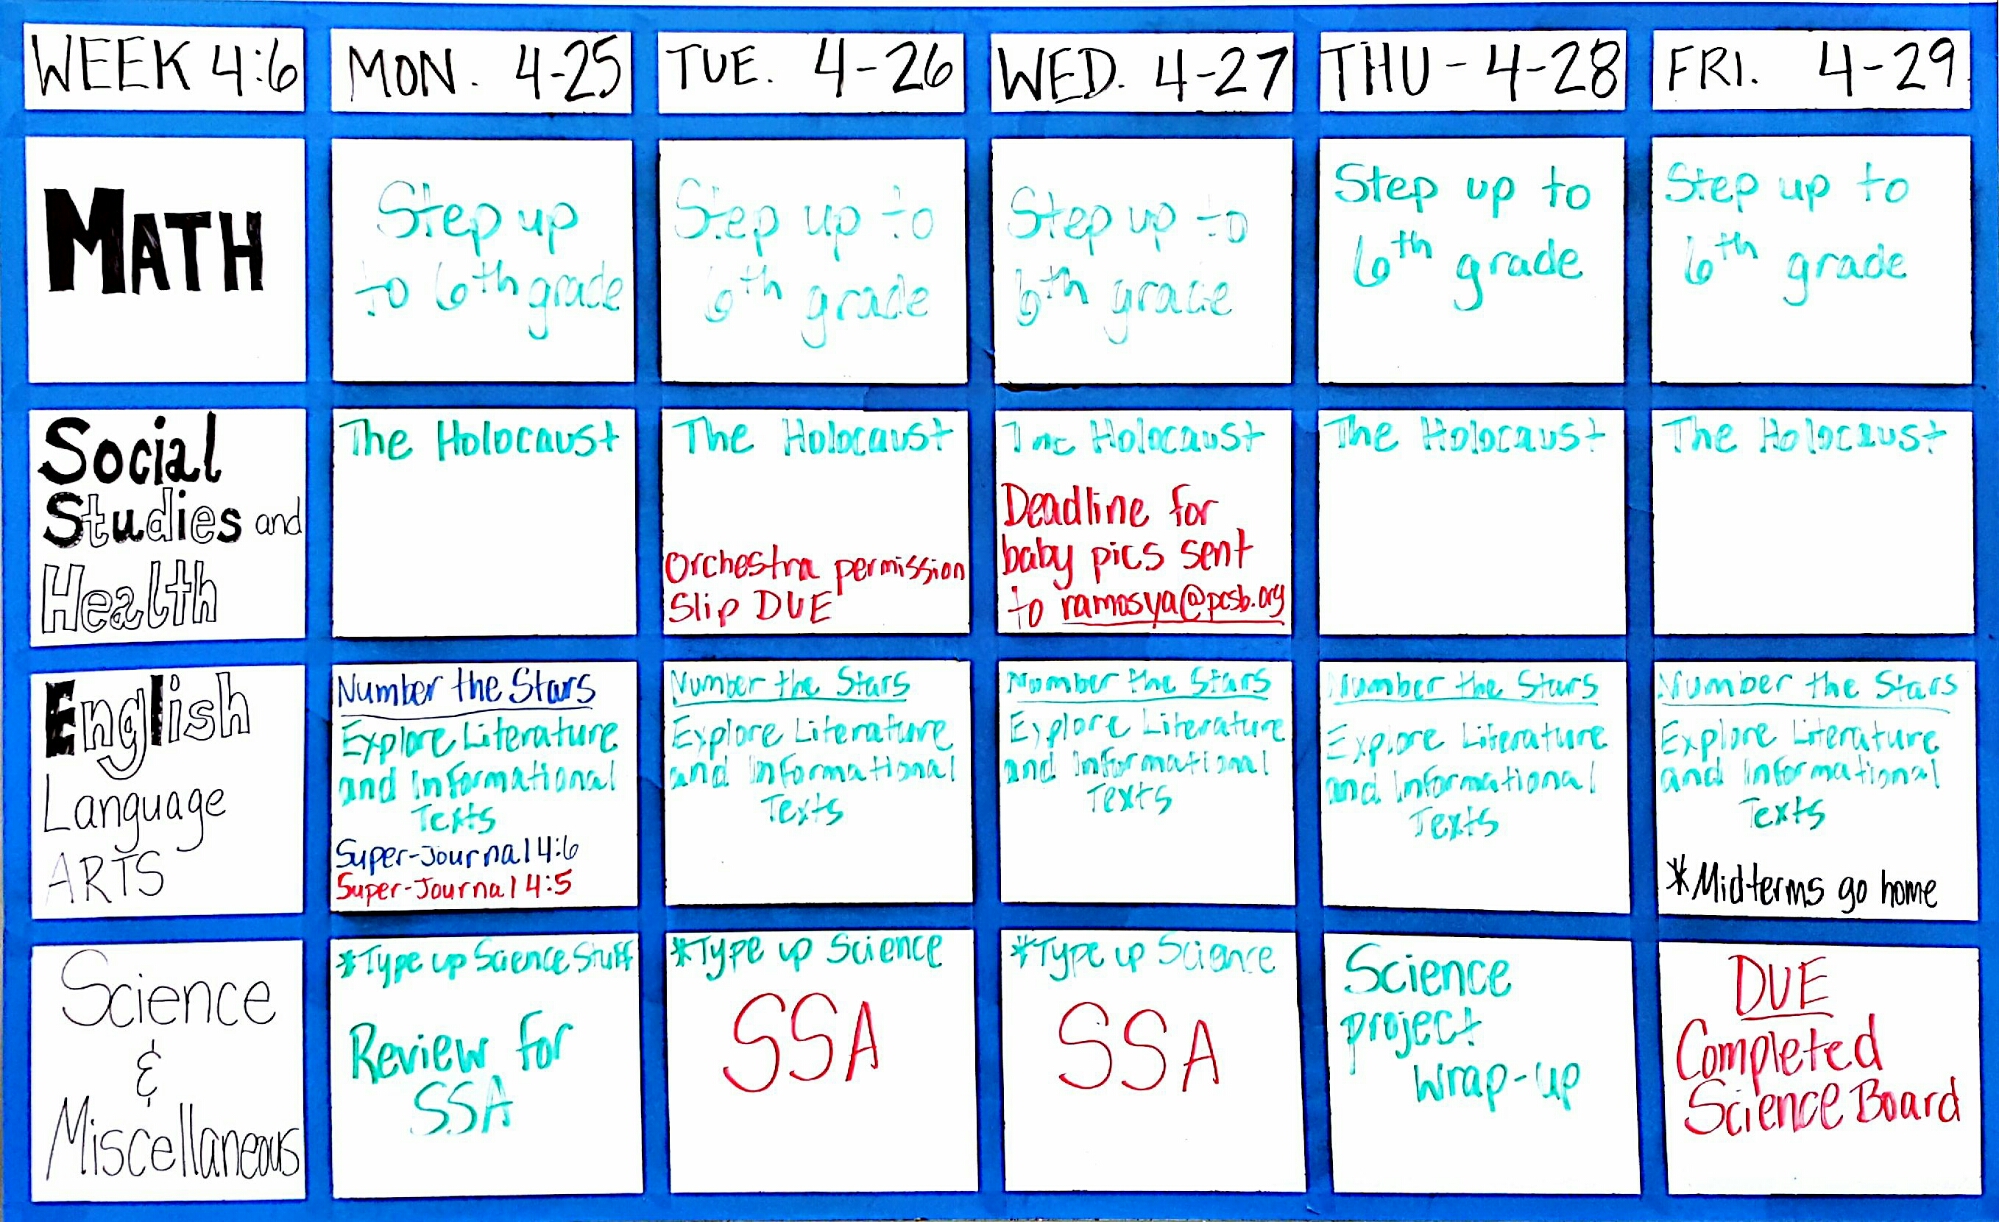 WEEK 4:6
MON. 4-25
TUE. 4-26
WED. 4-27
THU - 4-28
FRI. 4-29
MATH
Step up
to 6th grade
Step up to
6th grade
Step up to
6th grade
Step up to
6th grade
Step up to
6th grade
Social
Studies and
Health
The Holocaust
The Holocaust
Orchestra permission
Slip DUE
The Holocaust
Deadline for
baby pics sent
to ramosya@pcsb.org
The Holocaust
The Holocaust
English
Language
ARTS
Number the Stars
Explore Literature
and Informational
Texts
Super-Journal 4:6
Super-Journal 4:5
Number the Stars
Explore Literature
and Informational
Texts
Number the Stars
Explore Literature
and Informational
Texts
Number the Stars
Explore Literature
and Informational
Texts
Number the Stars
Explore Literature
and Informational
Texts
*Midterms go home
Science
&
Miscellaneous
*Type up Science Stuff
Review for
SSA
*Type up Science
SSA
*Type up Science
SSA
Science
project
Wrap-up
DUE
Completed
Science Board